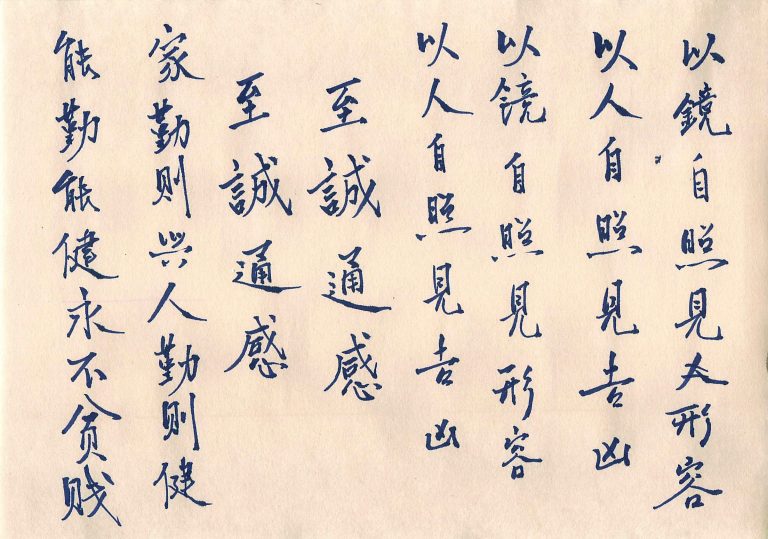 以鏡自照見形容
以人自照見吉凶
以鏡自照見形容
以人自照見吉凶
至誠通感
至誠通感
家勤則兴人勤則健
能勤能健永不貧賤